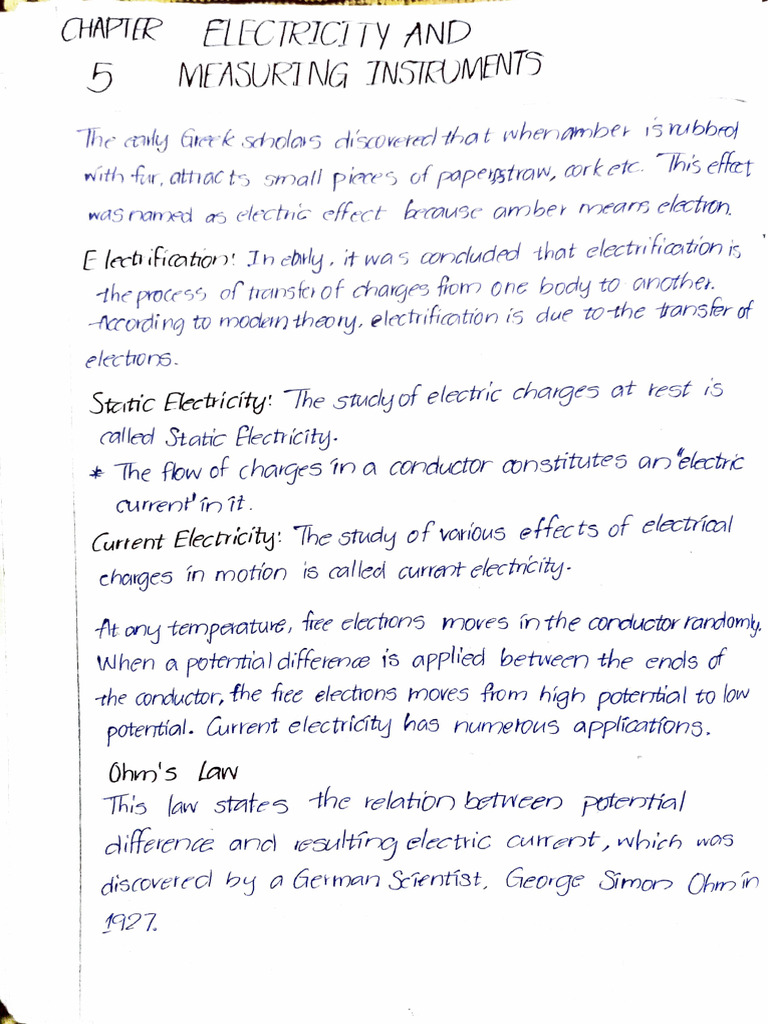 CHAPTER ELECTRICITY AND
5 MEASURING INSTRUMENTS
The early Greek scholars discovered that when amber is rubbed
with fur, attracts small pieces of paper, straw, cork etc. This effect
was named as electric effect because amber means electron.
Electrification: In early, it was concluded that electrification is
the process of transfer of charges from one body to another.
According to modern theory, electrification is due to the transfer of
electrons.
Static Electricity: The study of electric charges at rest is
called Static Electricity.
* The flow of charges in a conductor constitutes an "electric
current" in it.
Current Electricity: The study of various effects of electrical
charges in motion is called current electricity.
At any temperature, free electrons moves in the conductor randomly.
When a potential difference is applied between the ends of
the conductor, the free electrons moves from high potential to low
potential. Current electricity has numerous applications.
Ohm's Law
This law states the relation between potential
difference and resulting electric current, which was
discovered by a German Scientist, George Simon Ohm in
1927.